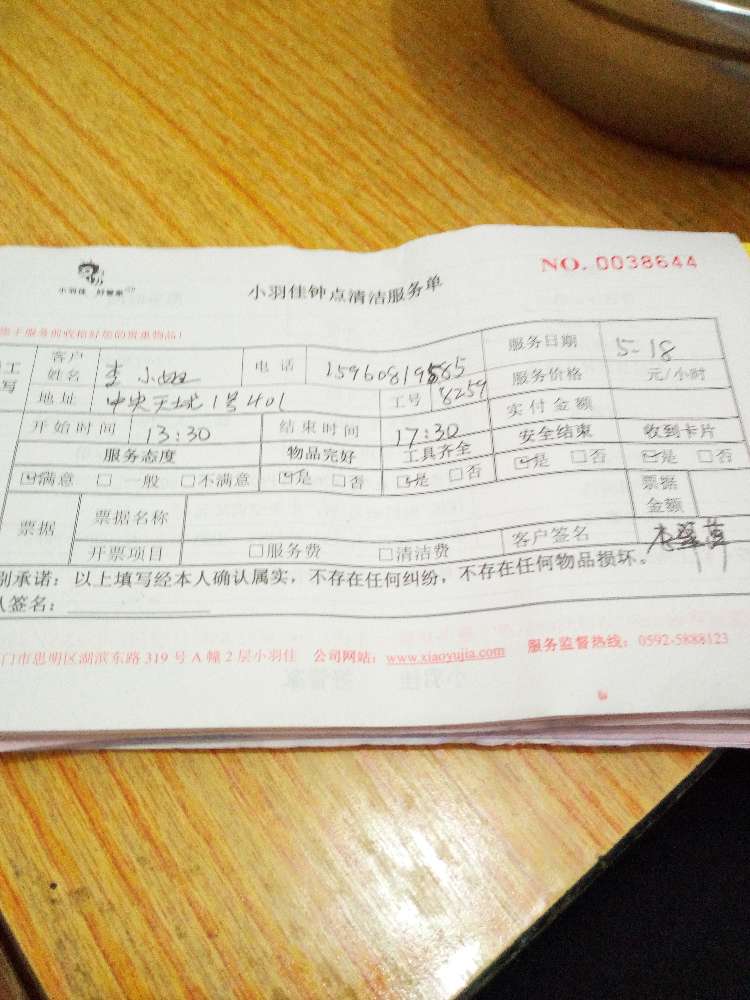 小羽佳 好管家
小羽佳钟点清洁服务单
NO. 0038644
服务前收拾好您的贵重物品!
工
写
客户姓名 李小姐 电话 15960819585 服务日期 5-18
地址 中央天成1号401 工号 8259 服务价格 元/小时
开始时间 13:30 结束时间 17:30 实付金额
服务态度 物品完好 工具齐全 安全结束 收到卡片
☑满意 □一般 □不满意 ☑是 □否 ☑是 □否 ☑是 □否 ☑是 □否
票据 票据名称 票据金额
开票项目 □服务费 □清洁费 客户签名
别承诺:以上填写经本人确认属实,不存在任何纠纷,不存在任何物品损坏。
人签名:
门市思明区湖滨东路319号A幢2层小羽佳 公司网站:www.xiaoyujia.com 服务监督热线:0592-5888123